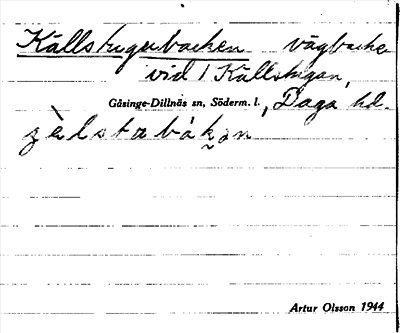 Källstugubacken vägbacke
vid 1 Källstugan,
Gåsinge-Dillnäs sn, Söderm. l., Daga hd.
Artur Olsson 1944